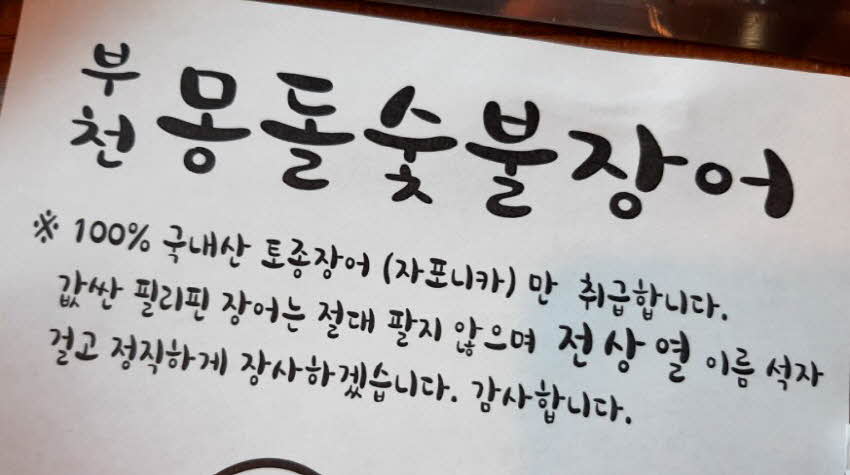 부천 몽돌숯불장어
※ 100% 국내산 토종장어 (자포니카) 만 취급합니다.
값싼 필리핀 장어는 절대 팔지 않으며 전상열 이름 석자
걸고 정직하게 장사하겠습니다. 감사합니다.